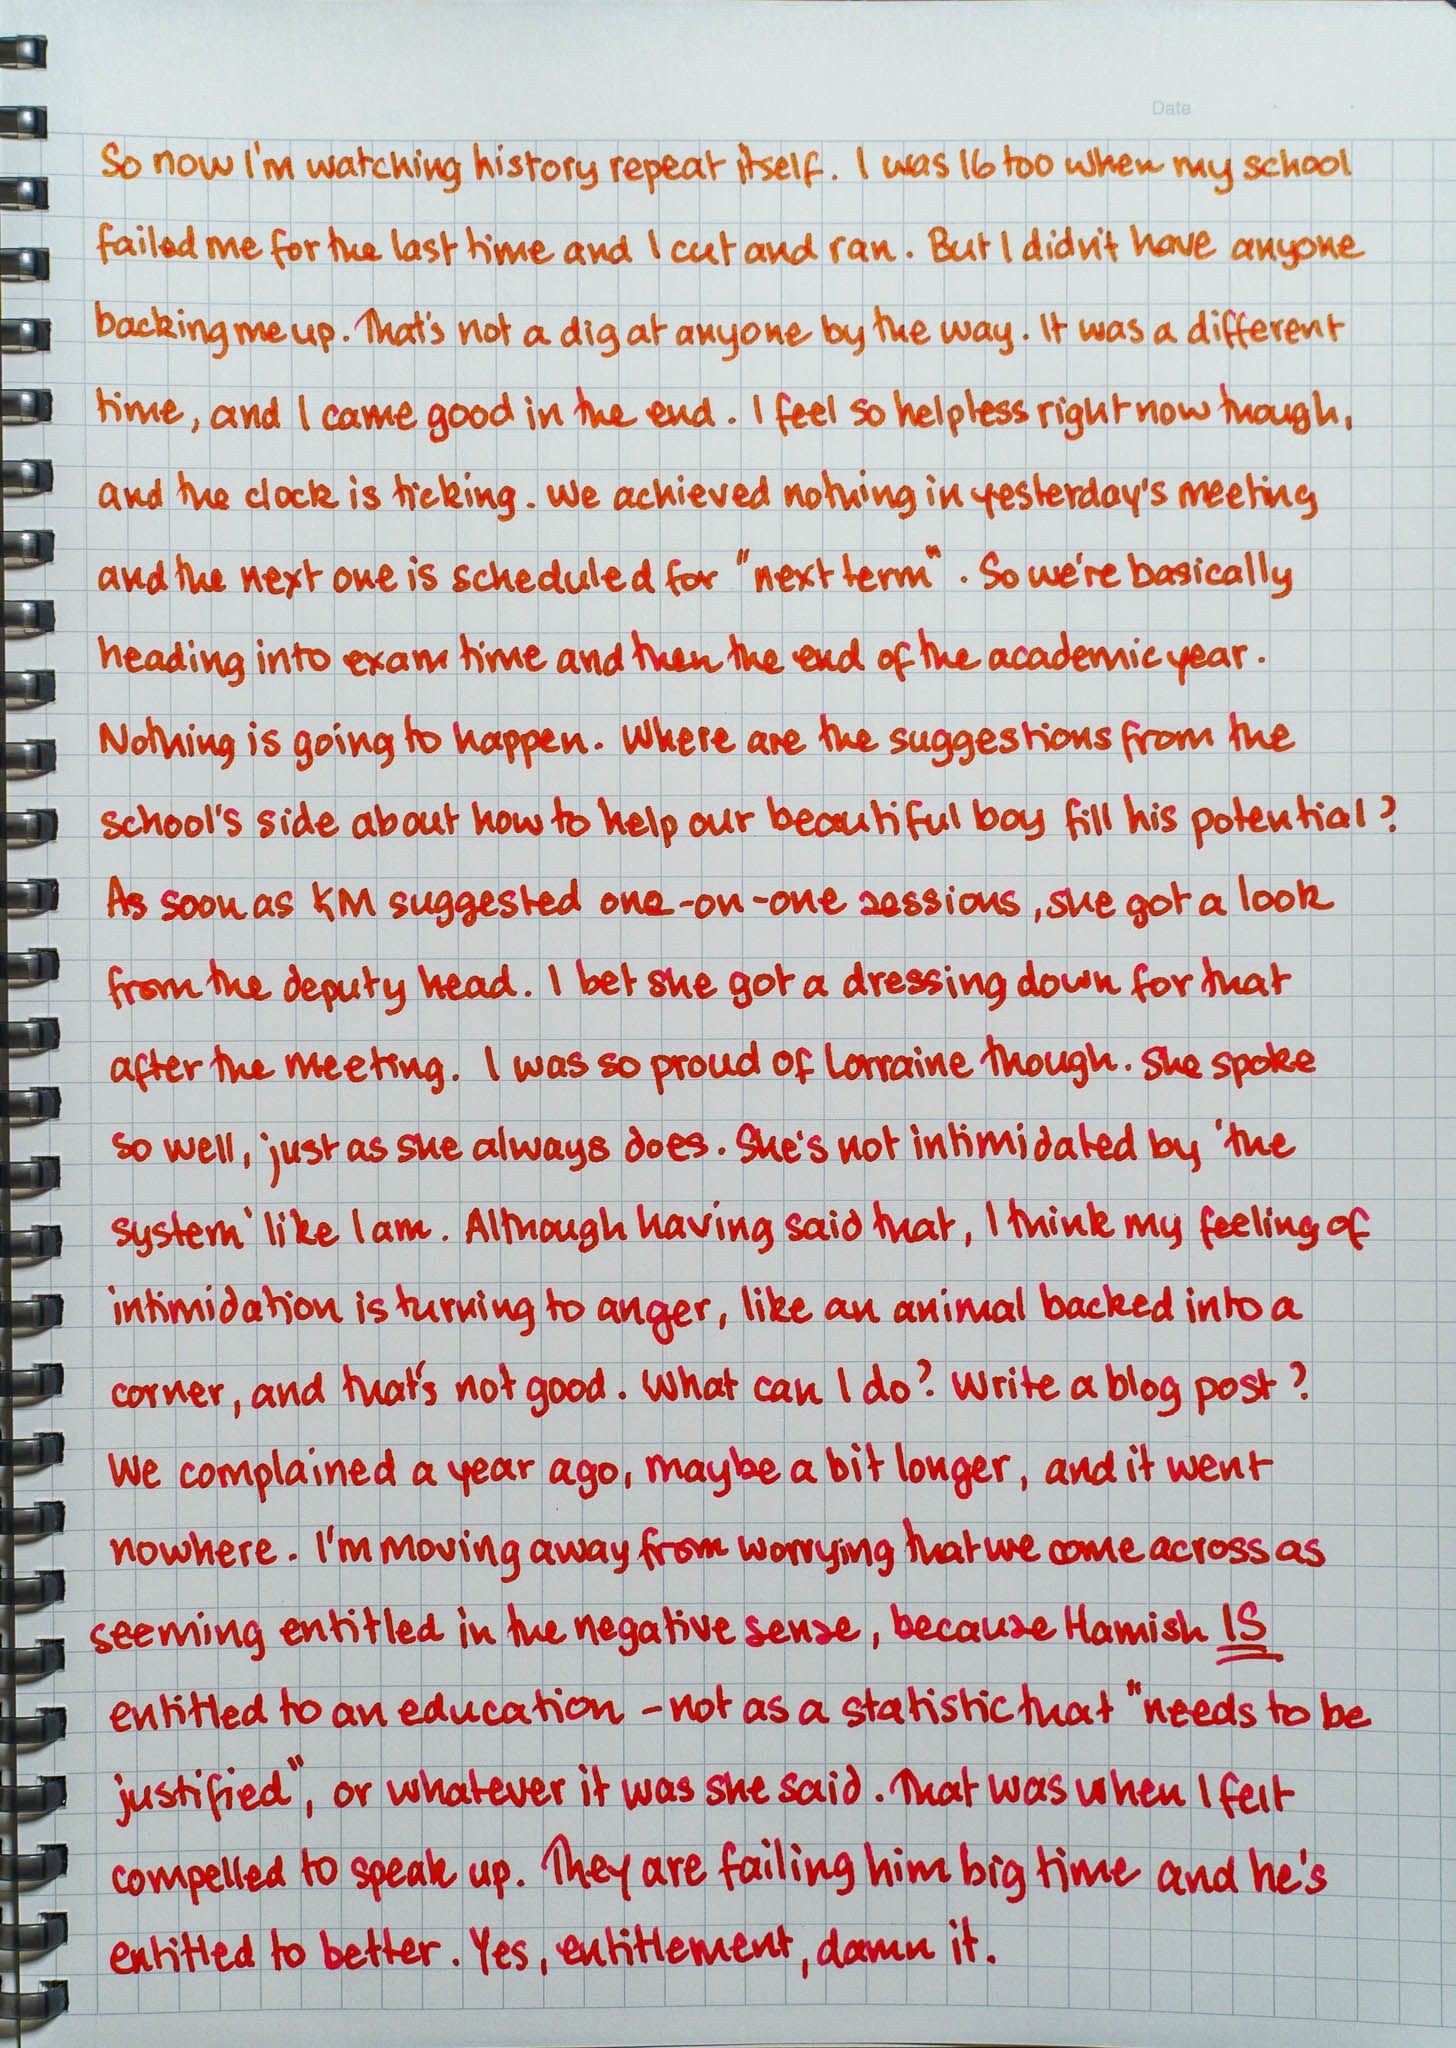 Date
So now I'm watching history repeat itself. I was 16 too when my school
failed me for the last time and I cut and ran. But I didn't have anyone
backing me up. That's not a dig at anyone by the way. It was a different
time, and I came good in the end. I feel so helpless right now though,
and the clock is ticking. We achieved nothing in yesterday's meeting
and the next one is scheduled for "next term". So we're basically
heading into exam time and then the end of the academic year.
Nothing is going to happen. Where are the suggestions from the
school's side about how to help our beautiful boy fill his potential?
As soon as KM suggested one-on-one sessions, she got a look
from the deputy head. I bet she got a dressing down for that
after the meeting. I was so proud of Lorraine though. She spoke
so well, just as she always does. She's not intimidated by 'the
system' like I am. Although having said that, I think my feeling of
intimidation is turning to anger, like an animal backed into a
corner, and that's not good. What can I do? Write a blog post?
We complained a year ago, maybe a bit longer, and it went
nowhere. I'm moving away from worrying that we come across as
seeming entitled in the negative sense, because Hamish IS
entitled to an education - not as a statistic that "needs to be
justified", or whatever it was she said. That was when I felt
compelled to speak up. They are failing him big time and he's
entitled to better. Yes, entitlement, damn it.